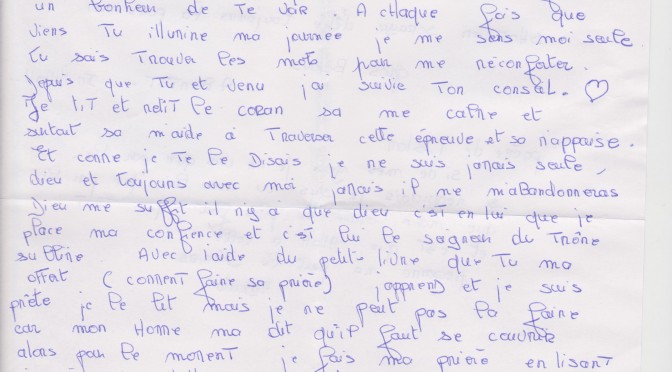 un bonheur de Te voir. A chaque fois que
viens Tu illumine ma journée je me sens moi seule
Tu sais Trouver les mots pour me réconforter.
Depuis que Tu et venu j'ai suivie Ton conseil. ♡
Je lit et relit le coran sa me calme et
surtout sa m'aide à Traverser cette épreuve et sa m'appaise.
Et comme je Te le Disais je ne suis jamais seule,
dieu et Toujours avec moi jamais il me m'abandonneras
Dieu me suffit il n'y a que dieu c'est en lui que je
place ma confience et c'est lui le seigneur du Trône
sublime Avec l'aide du petit-livre que Tu ma
offert (comment faire sa prière) j'apprend et je suis
prête je le lit mais je ne peut pas la faire
car mon Homme ma dit qu'il faut se couvrir
alors pour le moment je fais ma prière en lisant